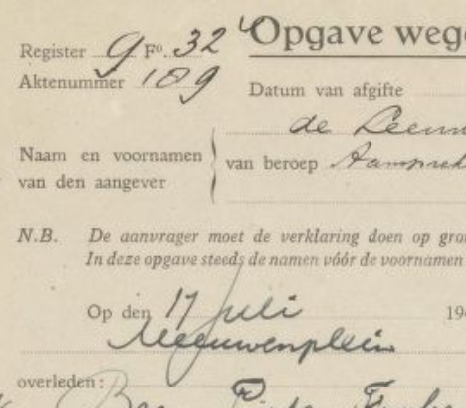 Register 9 Fº. 32
Opgave wege
Aktenummer 189
Datum van afgifte
de Leeuw
Naam en voornamen
van den aangever
van beroep
N.B. De aanvrager moet de verklaring doen op gro
In deze opgave steeds de namen vóór de voornamen
Op den 17 juli 19
Meeuwenplein
overleden: